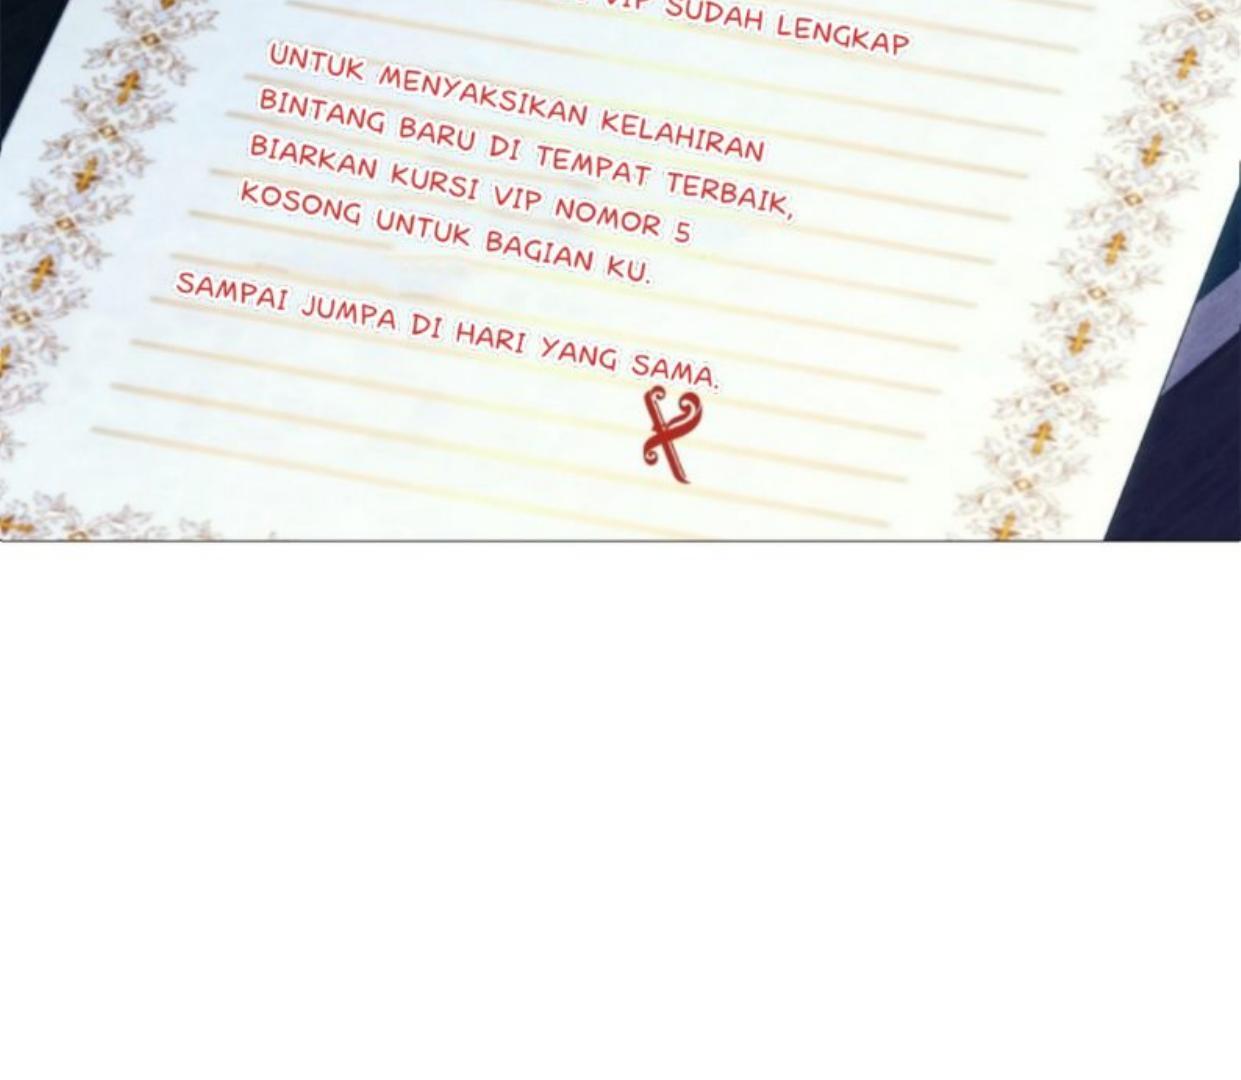 VIP SUDAH LENGKAP
UNTUK MENYAKSIKAN KELAHIRAN
BINTANG BARU DI TEMPAT TERBAIK,
BIARKAN KURSI VIP NOMOR 5
KOSONG UNTUK BAGIAN KU.
SAMPAI JUMPA DI HARI YANG SAMA.
X